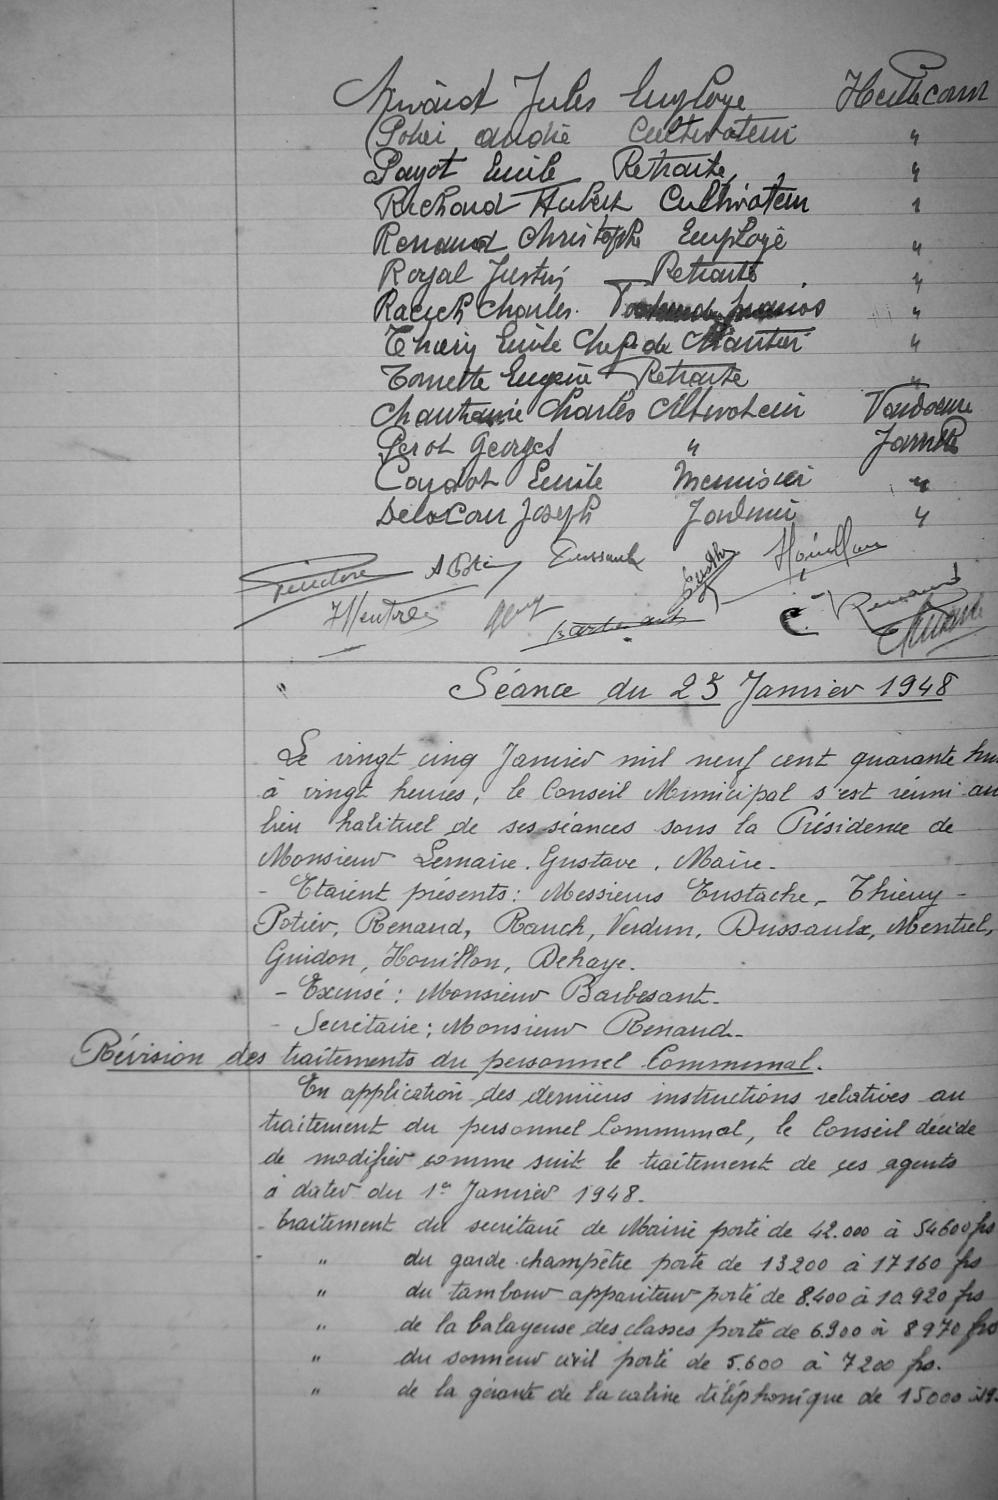 Jules Employé Heillecourt
Potier André Cultivateur "
Payot Emile Retraité "
Richard Hubert Cultivateur "
Renaud Christophe Employé "
Royal Justin Retraité "
Rauch Charles "
Thiery Emile Chef de Chantier "
Tonnette Eugène Retraité "
Charles Cultivateur Vandoeuvre
Perot Georges " Jarville
Emile Menuisier "
Joseph Jardinier "
Dussaulx Houillon
Renaud
Séance du 25 Janvier 1948
Le vingt cinq Janvier mil neuf cent quarante hui
à vingt heures, le Conseil Municipal s'est réuni au
lieu habituel de ses séances sous la Présidence de
Monsieur Lemaire Gustave, Maire.
- Etaient présents: Messieurs Eustache, Thiery -
Potier, Renaud, Rauch, Verdun, Dussaulx, Mentrel,
Guidon, Houillon, Dehaye.
- Excusé: Monsieur Barbesant.
- Secrétaire: Monsieur Renaud.
Révision des traitements du personnel Communal.
En application des dernières instructions relatives au
traitement du personnel Communal, le Conseil décide
de modifier comme suit le traitement de ces agents
à dater du 1er Janvier 1948.
- traitement du secrétaire de Mairie porté de 42.000 à 54600 frs
- " du garde champêtre porté de 13200 à 17160 frs
" du tambour appariteur porté de 8.400 à 10920 frs
" de la balayeuse des classes porté de 6.900 à 8970 frs
" du sonneur civil porté de 5.600 à 7200 frs.
" de la gérante de la cabine téléphonique de 15000 à 19